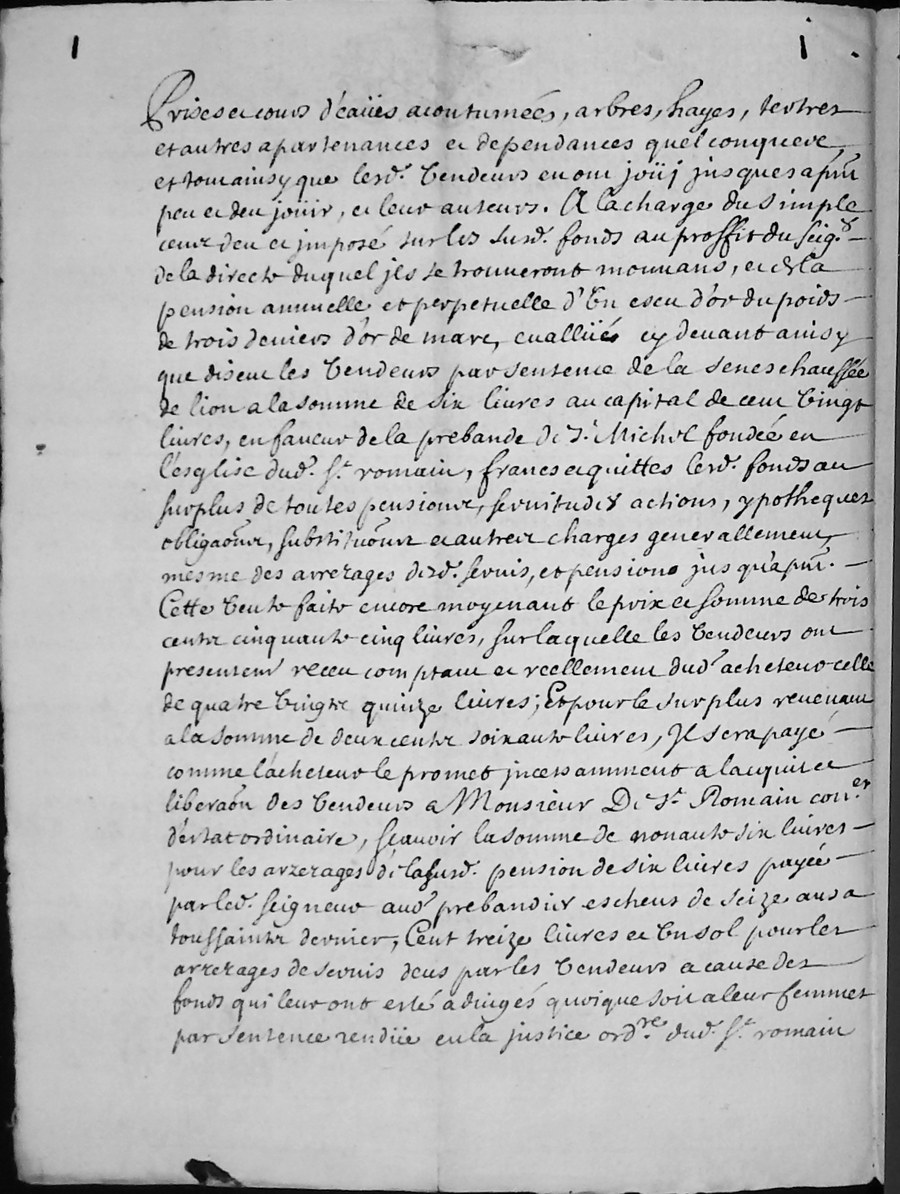 Prises et cours d'eaües acoutumées, arbres, hayes, tertres
et autres apartenances et dependances quelconqueve
et tout ainsy que lesd. Vendeurs en ont joüij jusques a pnt
peu et deu joüir, et leur auteurs. A la charge du simple
cens deu et jmposé sur les susd. fonds au proffit du seigr
de la directe duquel jls se trouueront mouuans, et de la
pension annuelle et perpetuelle d'Vn escu d'or du poids
de trois deniers d'or de marc, eualliié cy deuant ainsy
que disent les Vendeurs par sentence de la seneschaussée
de lion a la somme de six liures au capital de cent Vingt
liures, en faueur de la prebande de St Michel fondée en
l'esglise dud. St romain, francs et quittes lesd. fonds au
surplus de toutes pensions, seruitudes actions, ypotheques
obligaõns, substituõns et autres charges generallement
mesme des arrerages desd. seruis, et pensions jusqu'a pnt.
Cette Vente faite encore moyenant le prix et somme de trois
cents cinquante cinq liures, sur laquelle les Vendeurs ont
presentemt receu comptant et reellement dud. acheteur celle
de quatre Vingts quinze liures; Et pour le surplus reuenant
a la somme de deux cents soixante liures, Jl sera payé
comme l'acheteur le promet jncessamment a l'acquit et
liberaõn des Vendeurs a Monsieur De St Romain coner
d'estat ordinaire, sçauoir la somme de nonante six liures
pour les arrerages de la susd. pension de six liures payée
par led. seigneur aud. prebandier escheus de seize ans a
toussaints dernier, Cent treize liures et Vn sol pour les
arrerages de seruis deus par les Vendeurs a cause des
fonds qui leur ont esté adiugés quoique soit a leur femmes
par sentence rendüe en la justice ordre. dud. St romain